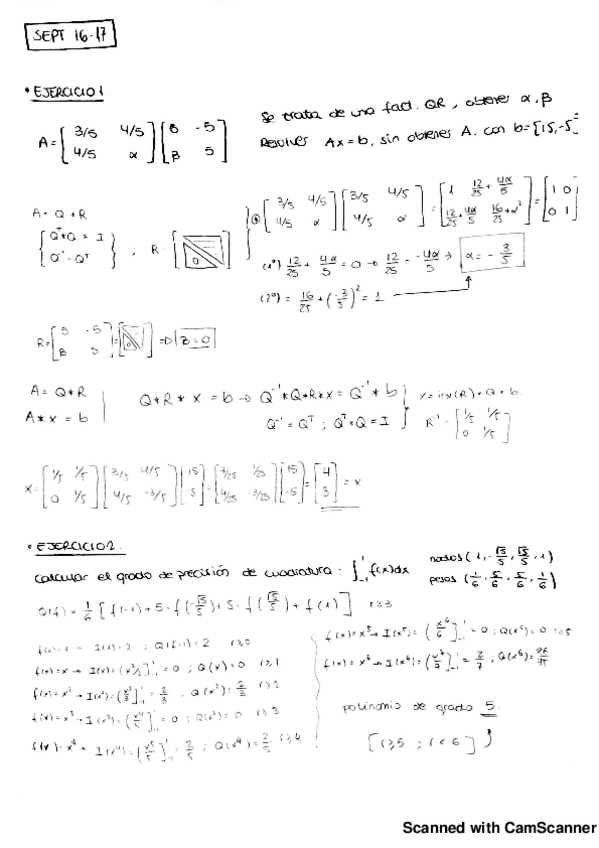 SEPT 16-17
• EJERCICIO 1
A = [ 3/5 4/5 ; 4/5 α ] [ 5 -5 ; β 5 ]
Se trata de una fact. QR, obtener α, β
Resolver Ax = b, sin obtener A. con b = [15, -5]
A = Q * R
{ Qᵀ * Q = I
Q⁻¹ = Qᵀ } ; R =
[ 3/5 4/5 ; 4/5 α ] [ 3/5 4/5 ; 4/5 α ] = [ 1 12/25 + 4α/5 ; 12/25 + 4α/5 16/25 + α² ] = [ 1 0 ; 0 1 ]
(1º) 12/25 + 4α/5 = 0 → 12/25 = -4α/5 → α = - 3/5
(2º) = 16/25 + (-3/5)² = 1
R = [ 5 -5 ; β 5 ] = [ ] => β = 0
A = Q * R
A * x = b
Q * R * x = b → Q⁻¹ * Q * R * x = Q⁻¹ * b
Q⁻¹ = Qᵀ ; Qᵀ * Q = I
x = inv(R) * Q * b.
R⁻¹ = [ 1/5 1/5 ; 0 1/5 ]
x = [ 1/5 1/5 ; 0 1/5 ] [ 3/5 4/5 ; 4/5 -3/5 ] [ 15 ; -5 ] = [ 7/25 1/25 ; 4/25 -3/25 ] [ 15 ; -5 ] = [ 4 ; 3 ] = x
• EJERCICIO 2.
Calcular el grado de precisión de cuadratura: ∫₋₁¹ f(x)dx
nodos (1, -√5/5, √5/5, 1)
pesos (1/6, 5/6, 5/6, 1/6)
Q(f) = 1/6 [ f(-1) + 5 · f(-√5/5) + 5 · f(√5/5) + f(1) ] r≥3
I(1) = 2 ; Q(1) = 2 r≥0
f(x) = x → I(x) = (x²/2]₋₁¹ = 0 ; Q(x) = 0 r≥1
f(x) = x² → I(x²) = (x³/3]₋₁¹ = 2/3 ; Q(x²) = 2/3 r≥2
f(x) = x³ → I(x³) = (x⁴/5]₋₁¹ = 0 ; Q(x³) = 0 r≥3
f(x) = x⁴ → I(x⁴) = (x⁵/5]₋₁¹ = 2/5 ; Q(x⁴) = 2/5 r≥4
f(x) = x⁵ → I(x⁵) = (x⁶/6]₋₁¹ = 0 ; Q(x⁵) = 0 r≥5
f(x) = x⁶ → I(x⁶) = (x⁷/7]₋₁¹ = 2/7 ; Q(x⁶) =
polinomio de grado 5.
[ r≥5 ; r<6 ]
Scanned with CamScanner